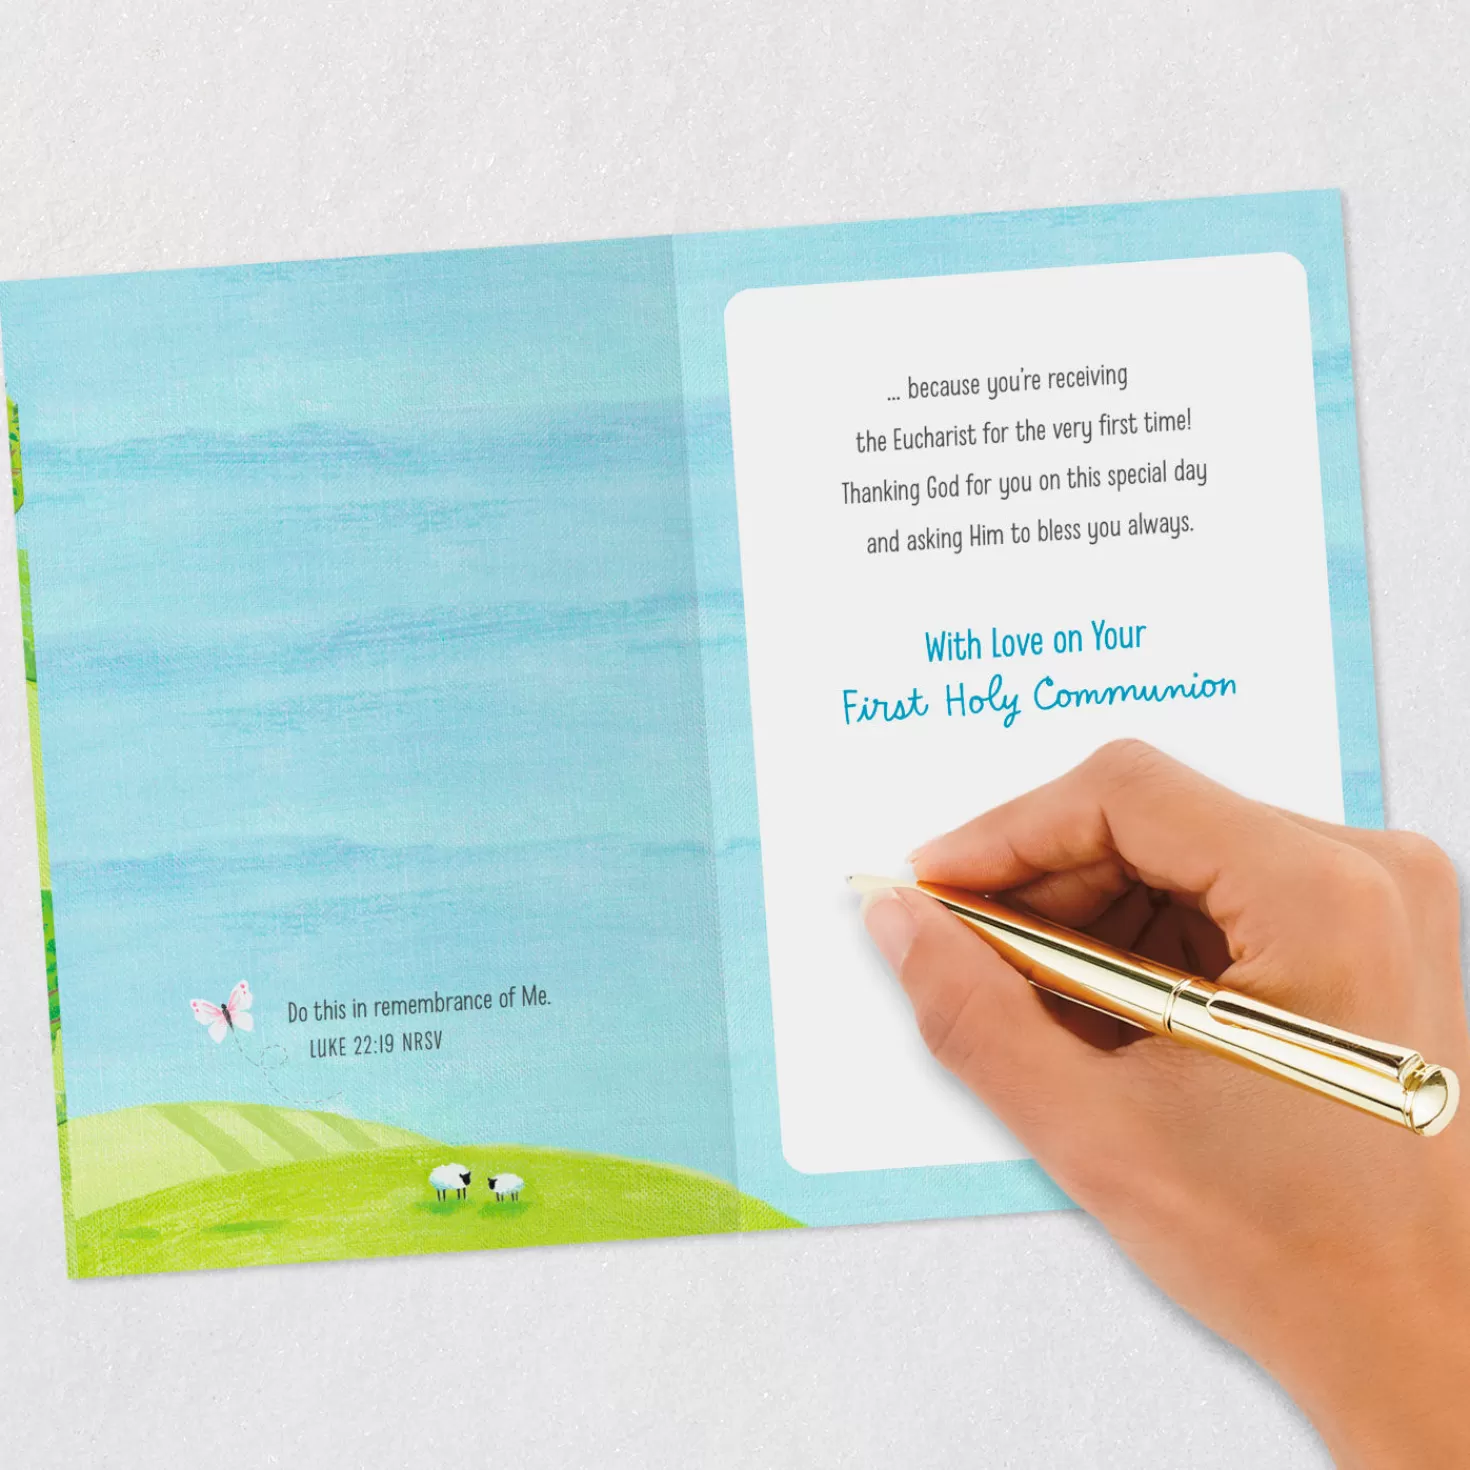 Do this in remembrance of Me.
LUKE 22:19 NRSV
... because you're receiving
the Eucharist for the very first time!
Thanking God for you on this special day
and asking Him to bless you always.
With Love on Your
First Holy Communion